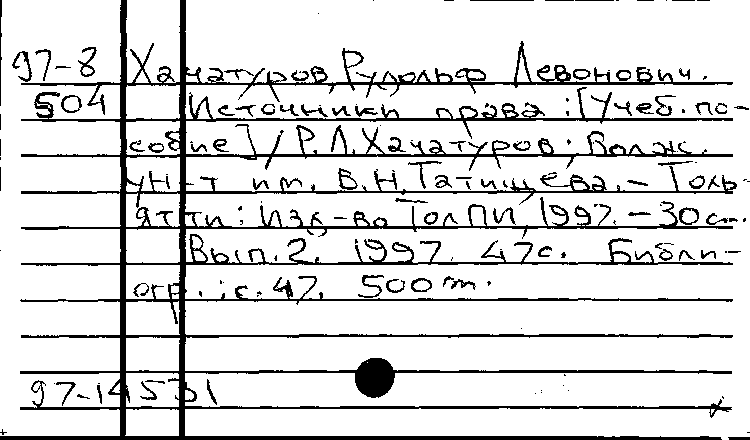 97-8 Хачатуров, Рудольф Левонович.
504 Источники права : [Учеб. по-
собие] / Р. Л. Хачатуров ; Волж.
ун-т им. В. Н. Татищева. – Толь-
ятти : Изд-во ТолПИ, 1997. – 30 см.
Вып. 2. 1997. 47 с. Библи-
огр. : с. 47. 500 т.
97-14531